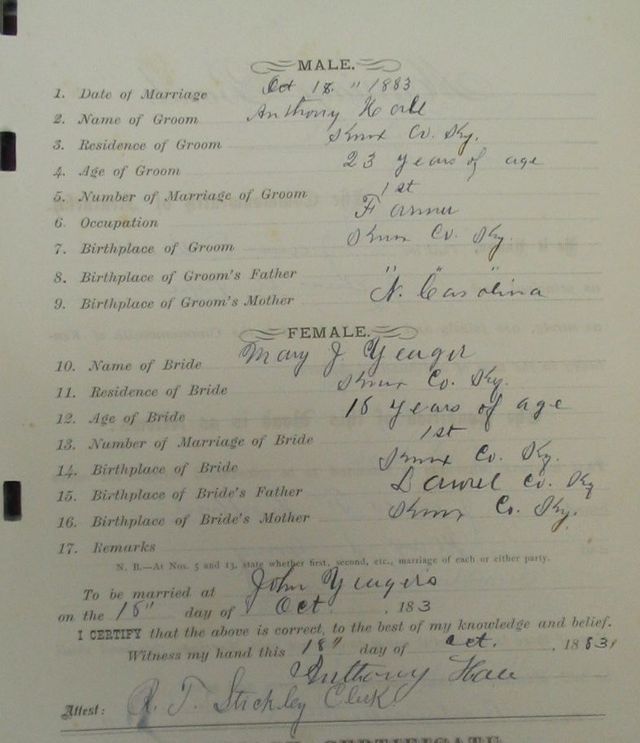 MALE.
1. Date of Marriage Oct 18 " 1883
2. Name of Groom Anthony Hall
3. Residence of Groom Knox Co. Ky.
4. Age of Groom 23 years of age
5. Number of Marriage of Groom 1st
6. Occupation Farmer
7. Birthplace of Groom Knox Co. Ky
8. Birthplace of Groom's Father " " "
9. Birthplace of Groom's Mother N. Carolina
FEMALE.
10. Name of Bride Mary J Yeager
11. Residence of Bride Knox Co. Ky.
12. Age of Bride 16 years of age
13. Number of Marriage of Bride 1st
14. Birthplace of Bride Knox Co. Ky.
15. Birthplace of Bride's Father Laurel Co. Ky
16. Birthplace of Bride's Mother Knox Co. Ky.
17. Remarks
N. B.—At Nos. 5 and 13, state whether first, second, etc., marriage of each or either party.
To be married at John Yeagers
on the 18" day of Oct. 183
I CERTIFY that the above is correct, to the best of my knowledge and belief.
Witness my hand this 18" day of Oct. 1883
Anthony Hall
Attest: R. T. Stickley Clerk
CERTIFICATE